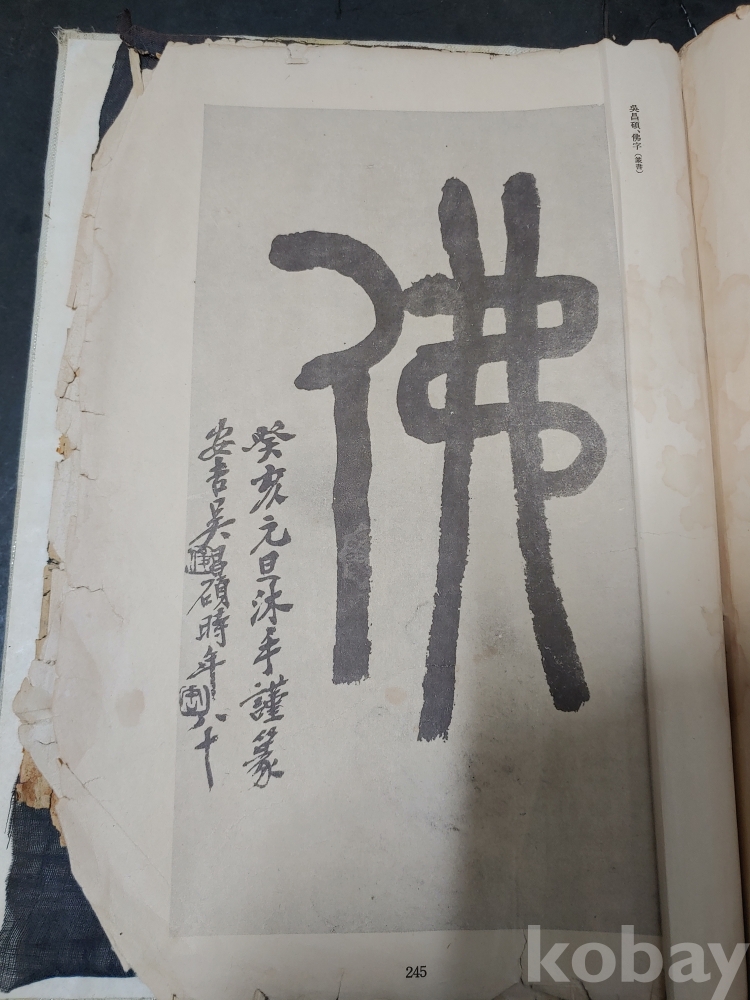 吳昌碩、佛字(篆書)
佛
癸亥元日沐手謹篆
安吉吳昌碩時年八十
245
kobay